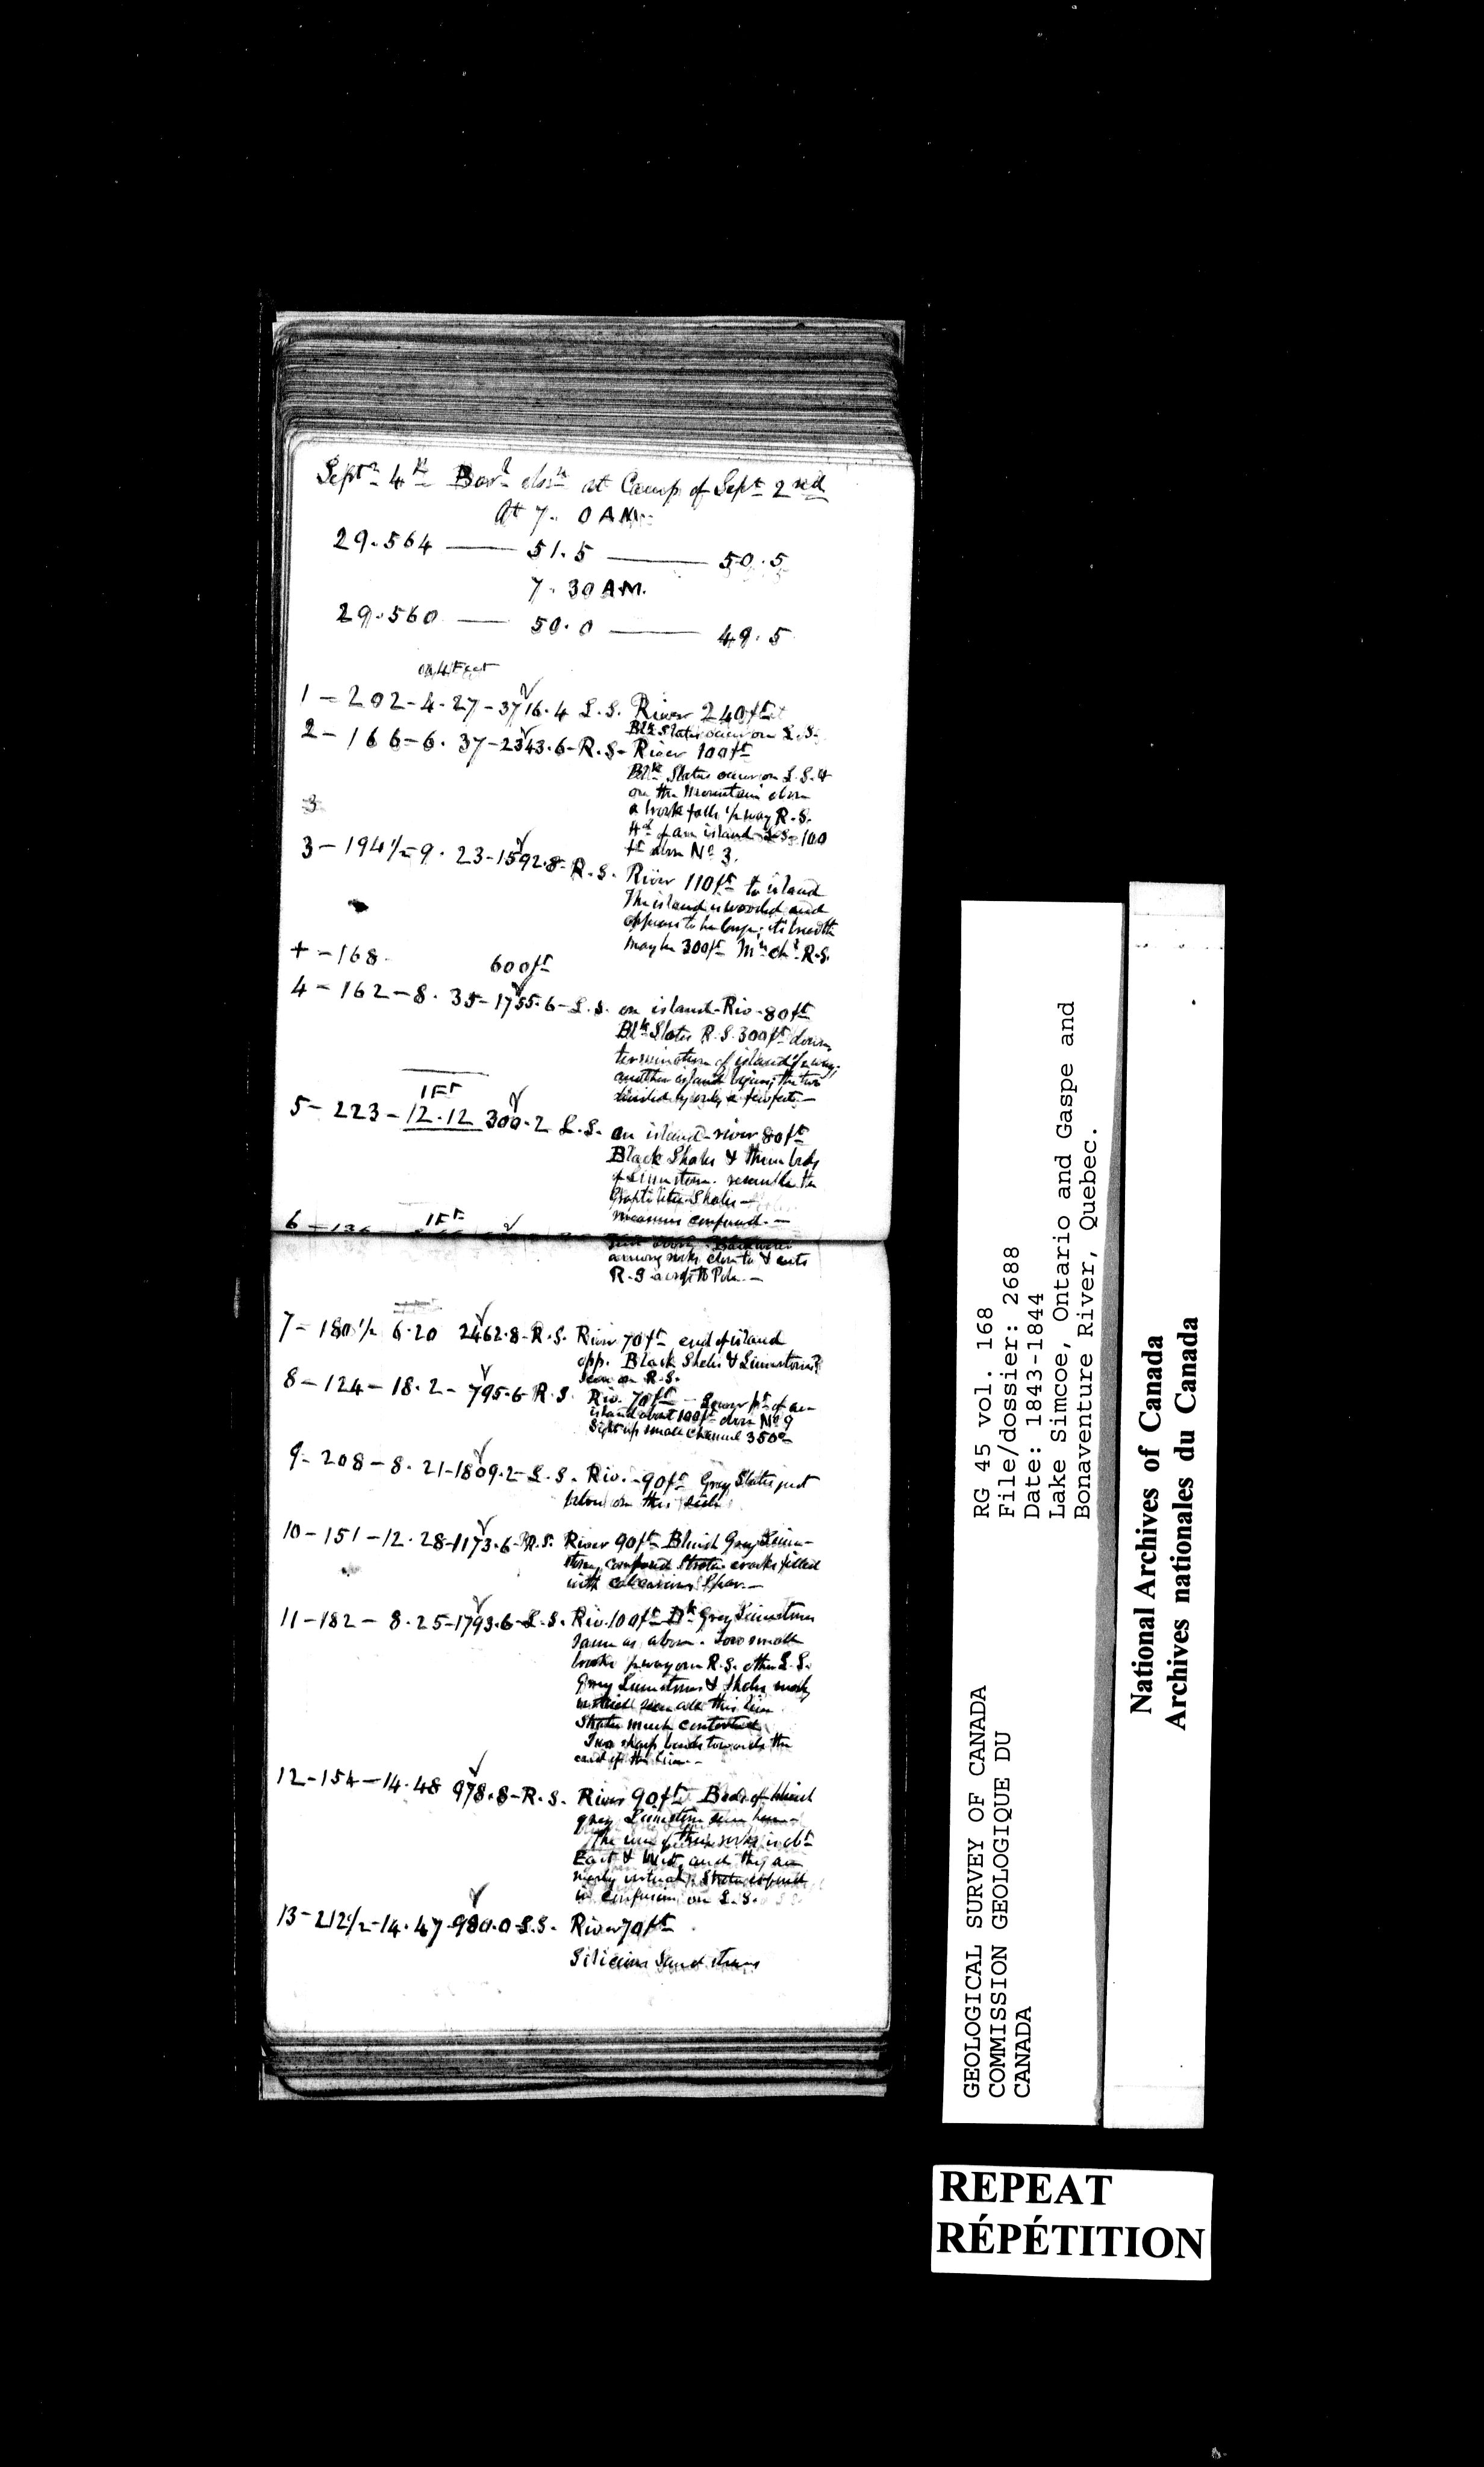 Septr 4th Barl obsn at Camp of Sept 2nd
At 7. 0 AM.
29.564 — 51.5 — 50.5
7. 30 AM.
29.560 — 50.0 — 49.5
on 4 Feet
1 - 202-4.27-3716.4 L.S. River 240ft
Blk Slates occur on L.S.
2 - 166-6.37-2343.6-R.S- River 100ft
Blk Slates occur on L.S. &
on the Mountain above
a brook falls ½ way R.S.
Hd of an island L.S. 100
ft above No 3.
3
3 - 194½-9.23-1592.8-R.S. River 110ft to island
The island is wooded and
appears to be large; its breadth
may be 300ft Mn chl R.S.
+ - 168 600ft
4 - 162-8.35-1755.6-L.S. on island-Riv-80ft
Blk Slates R.S. 300ft down
termination of island ½ way;
another island begins; the two
divided by only a few feet.—
1Ft
5 - 223-12.12 300.2 L.S. on island-river 80ft
Black Shales & thin beds
of Limestone. resemble the
Graptolitic Shales—
measures confused.—
6 - 136 1Ft
among rocks close to & cuts
R.S across to Pole.—
7 - 180½ 6.20 2462.8-R.S. River 70ft end of island
opp. Black Shales & Limestones
seen on R.S.
8 - 124-18.2-795.6 R.S. Riv. 70ft — Lower pt of an
island about 100ft above No 9
Sight up small channel 350°
9 - 208-8.21-1809.2-L.S. Riv.-90ft Grey Slates just
below on this side
10 - 151-12.28-1173.6-R.S. River 90ft Bluish Grey Lime-
stone, confused Strata cracks filled
with calcareous Spar.—
11 - 182-8.25-1793.6-L.S. Riv. 100ft Dk Grey Limestone
same as above. Two small
brooks ½ way one R.S. other L.S.
Grey Limestones & Shales nearly
vertical seen all this line
Strata much contorted
Two sharp bends towards the
end of the line.—
12 - 154-14.48 978.8-R.S. River 90ft Beds of bluish
grey Limestone seen here—
The run of these rocks is abt
East & West, and they are
nearly vertical. Strata
in confusion on L.S.
13 - 212½-14.47-980.0-L.S. River 70ft
Silicious Sandstones
GEOLOGICAL SURVEY OF CANADA
COMMISSION GEOLOGIQUE DU
CANADA
RG 45 vol. 168
File/dossier: 2688
Date: 1843-1844
Lake Simcoe, Ontario and Gaspe and
Bonaventure River, Quebec.
National Archives of Canada
Archives nationales du Canada
REPEAT
RÉPÉTITION